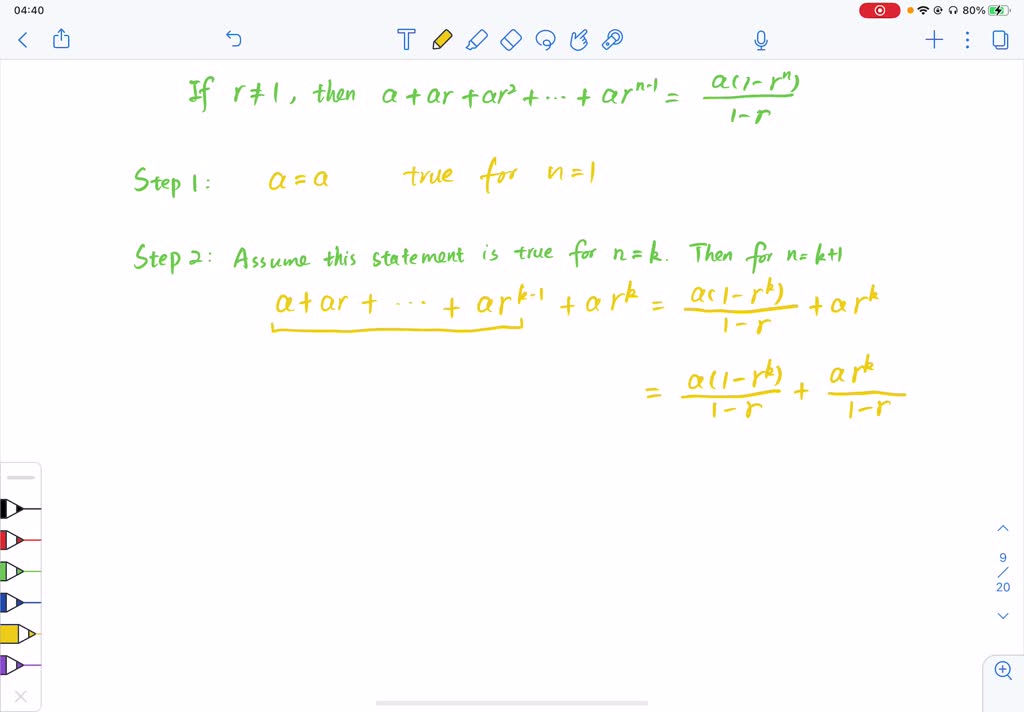 04:40
80%
If r≠1, then a + ar + ar² + ⋯ + arⁿ⁻¹ = a(1-rⁿ)/1-r
Step 1: a = a true for n=1
Step 2: Assume this statement is true for n=k. Then for n=k+1
a + ar + ⋯ + arᵏ⁻¹ + arᵏ = a(1-rᵏ)/1-r + arᵏ
= a(1-rᵏ)/1-r + arᵏ/1-r
9
/
20